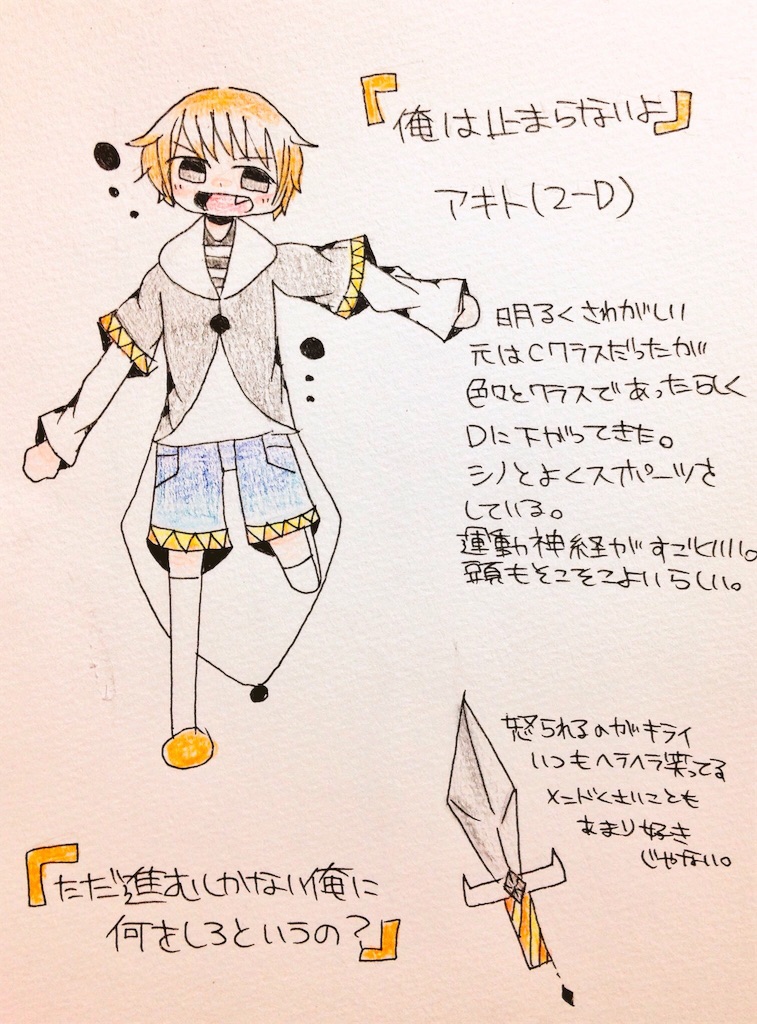 『俺は止まらないよ』
アキト(2-D)
明るくさわがしい
元はCクラスだったが
色々とクラスであったらしく
Dに下がってきた。
シノとよくスポーツを
している。
運動神経がすごくいい。
頭もそこそこよいらしい。
怒られるのがキライ
いつもヘラヘラ笑ってる
メンドくさいことも
あまり好き
じゃない。
『ただ進むしかない俺に
何をしろというの?』